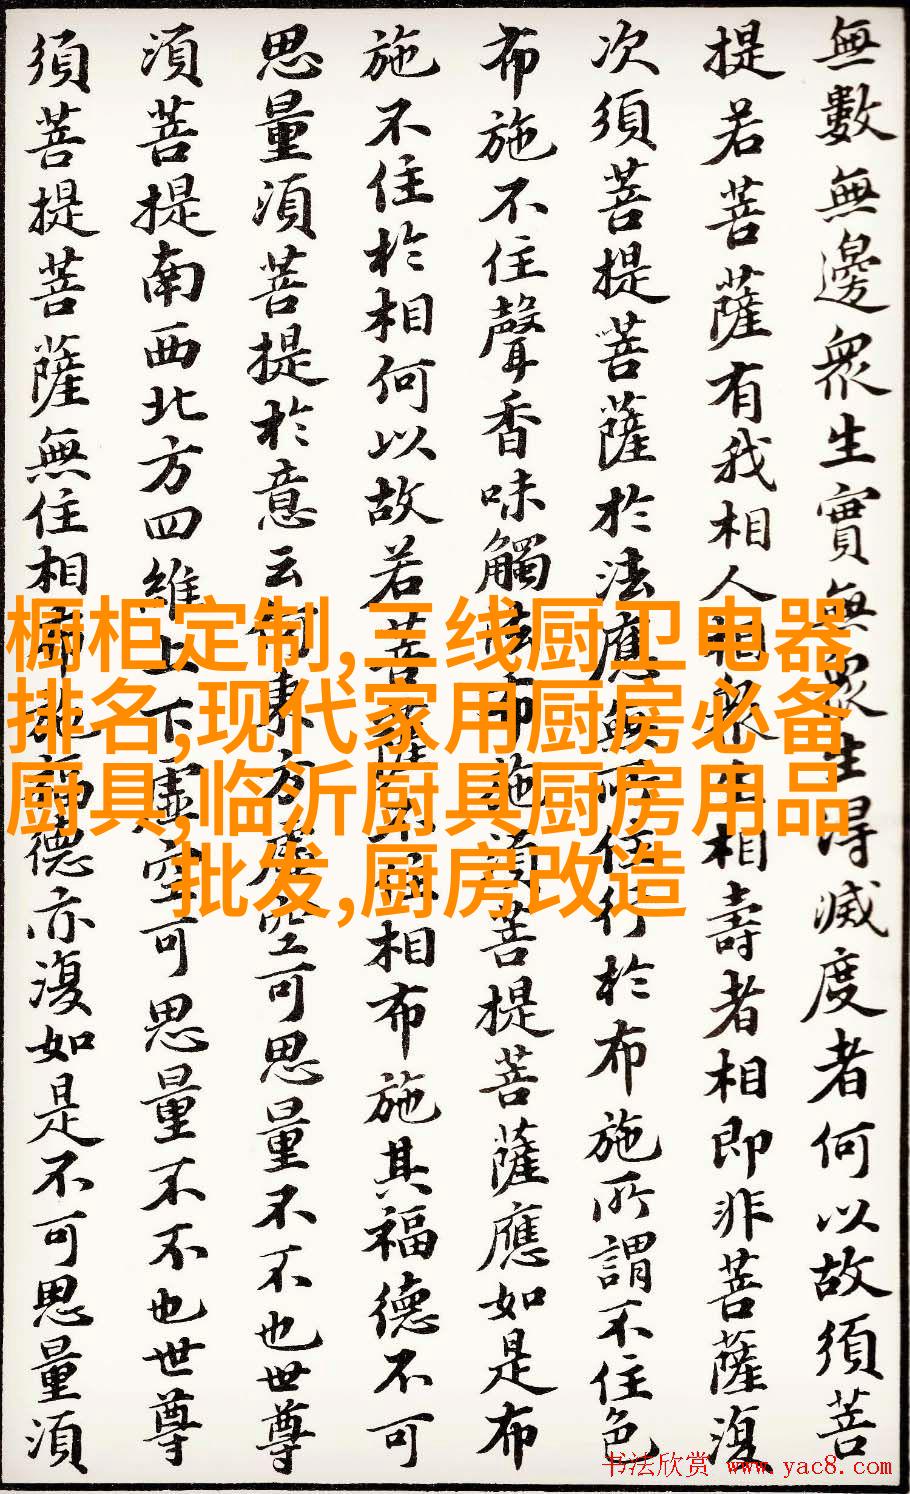 無數無邊眾生實無眾生得滅度者何以故須菩
提若菩薩有我相人相眾生相壽者相即非菩薩復
次須菩提菩薩於法應無所住行於布施所謂不住色
布施不住聲香味觸法布施須菩提菩薩應如是布
施不住於相何以故若菩薩不住相布施其福德不可
思量須菩提於意云何東方虛空可思量不不也世尊
須菩提南西北方四維上下虛空可思量不不也世尊
須菩提菩薩無住相布施福德亦復如是不可思量須
橱柜定制,三线厨卫电器
排名,现代家用厨房必备
厨具,临沂厨具厨房用品
批发,厨房改造
书法欣赏 www.yac8.com